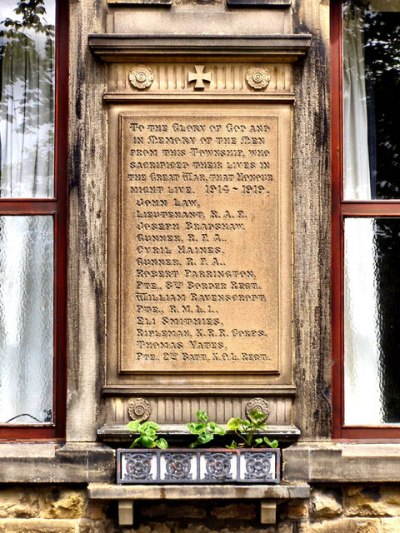 To the Glory of God and
in Memory of the Men
from this Township, who
sacrificed their lives in
the Great War, that Honour
might live. 1914-1919.
John Law,
Lieutenant, R.A.F.
Joseph Bradshaw,
Gunner, R.F.A.
Cyril Haines,
Gunner, R.F.A.
Robert Parrington,
Pte., 8th Border Regt.
William Ravenscroft,
Pte., R.M.L.I.
Eli Smithies,
Rifleman, K.R.R. Corps.
Thomas Yates,
Pte., 2nd Batt., K.O.L. Regt.